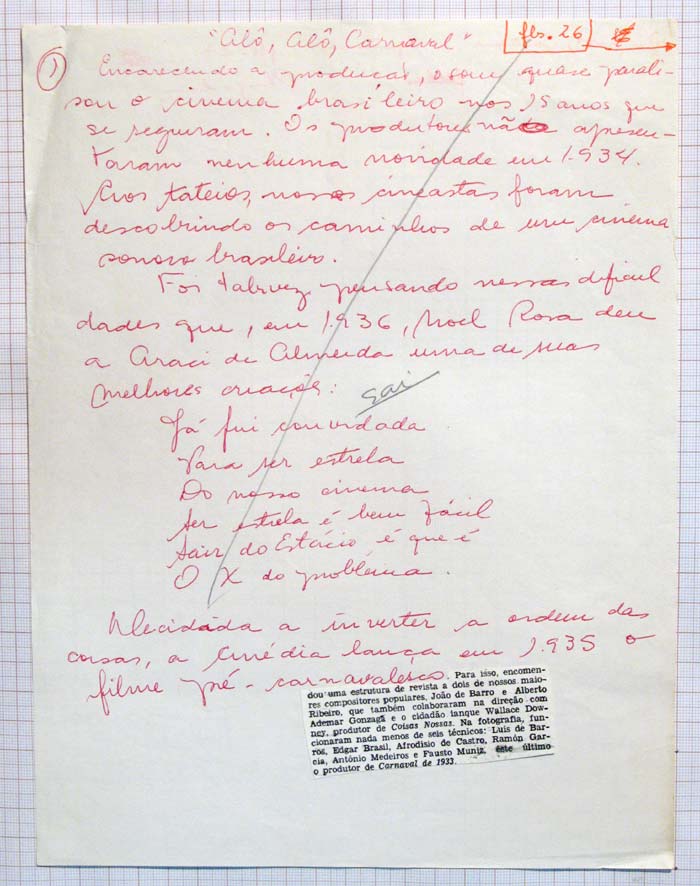 "Alô, Alô, Carnaval"
fls. 26
1
Encarecendo a produção, o som quase parali-
sou o cinema brasileiro nos 15 anos que
se seguiram. Os produtores não apresen-
taram nenhuma novidade em 1.934.
Aos tateios, nossos cineastas foram
descobrindo os caminhos de um cinema
sonoro brasileiro.
Foi talvez pensando nessas dificul
dades que, em 1.936, Noel Rosa deu
a Araci de Almeida uma de suas
melhores criações:
sai
Já fui convidada
Para ser estrela
Do nosso cinema
Ser estrela é bem fácil
Sair do Estácio é que é
O X do problema.
Decidida a inverter a ordem das
coisas, a Cinédia lança em 1.935 o
filme pré-carnavalesco.
dou uma estrutura de revista a dois de nossos maio-
res compositores populares, João de Barro e Alberto
Ribeiro, que também colaboraram na direção com
Ademar Gonzaga e o cidadão ianque Wallace Dow-
ney, produtor de Coisas Nossas. Na fotografia, fun-
cionaram nada menos de seis técnicos: Luís de Bar-
ros, Edgar Brasil, Afrodísio de Castro, Ramón Gar-
cia, Antônio Medeiros e Fausto Muniz, este último
o produtor de Carnaval de 1933.